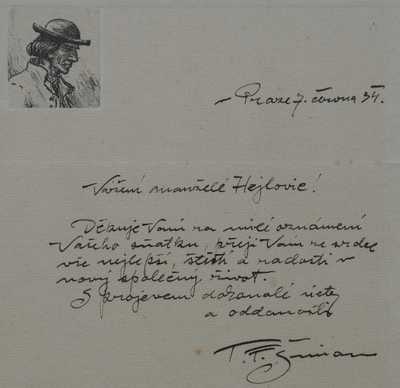 v Praze 7. června 34.
Vážení manželé Hejlovic!
Děkuje Vám za milé oznámení
Vašeho sňatku, přeji Vám ze srdce
vše nejlepší, štěstí a radosti v
nový společný život.
S projevem dokonalé úcty
a oddanosti
T. F. Šimon